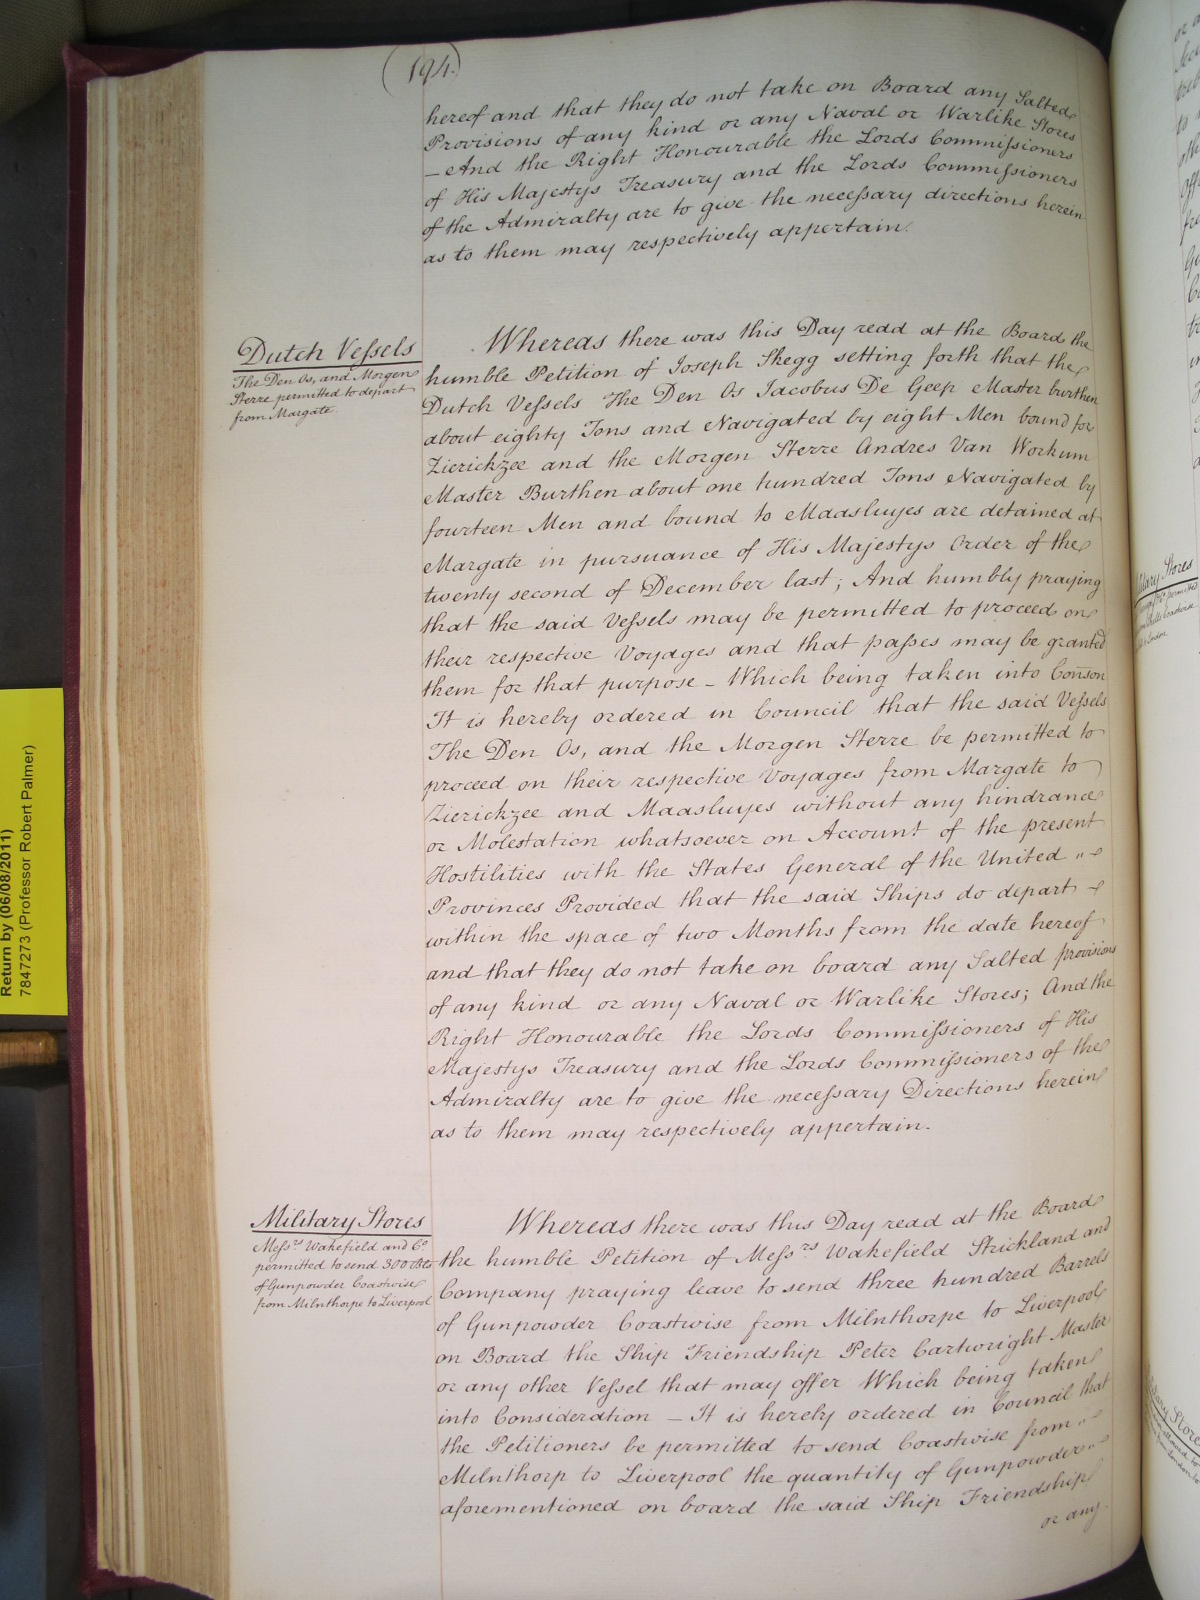 (194)
hereof and that they do not take on Board any Salted
Provisions of any kind or any Naval or Warlike Stores
– And the Right Honourable the Lords Commissioners
of His Majestys Treasury and the Lords Commissioners
of the Admiralty are to give the necessary directions herein
as to them may respectively appertain.
Dutch Vessels
The Den Os, and Morgen
Sterre permitted to depart
from Margate.
Whereas there was this Day read at the Board the
humble Petition of Joseph Skegg setting forth that the
Dutch Vessels The Den Os Jacobus De Geep Master burthen
about eighty Tons and Navigated by eight Men bound for
Zierickzee and the Morgen Sterre Andres Van Workum
Master Burthen about one hundred Tons Navigated by
fourteen Men and bound to Maasluyes are detained at
Margate in pursuance of His Majestys Order of the
twenty second of December last; And humbly praying
that the said Vessels may be permitted to proceed on
their respective Voyages and that passes may be granted
them for that purpose – Which being taken into Conson
It is hereby ordered in Council that the said Vessels
The Den Os, and the Morgen Sterre be permitted to
proceed on their respective Voyages from Margate to
Zierickzee and Maasluyes without any hindrance
or Molestation whatsoever on Account of the present
Hostilities with the States General of the United
Provinces Provided that the said Ships do depart
within the space of two Months from the date hereof
and that they do not take on board any Salted provisions
of any kind or any Naval or Warlike Stores; And the
Right Honourable the Lords Commissioners of His
Majestys Treasury and the Lords Commissioners of the
Admiralty are to give the necessary Directions herein
as to them may respectively appertain.
Military Stores
Messrs Wakefield and Co.
permitted to send 300 Bls
of Gunpowder Coastwise
from Milnthorpe to Liverpool
Whereas there was this Day read at the Board
the humble Petition of Messrs Wakefield Strickland and
Company praying leave to send three hundred Barrels
of Gunpowder Coastwise from Milnthorpe to Liverpool
on Board the Ship Friendship Peter Cartwright Master
or any other Vessel that may offer Which being taken
into Consideration – It is hereby ordered in Council that
the Petitioners be permitted to send Coastwise from
Milnthorp to Liverpool the quantity of Gunpowder
aforementioned on board the said Ship Friendship
or any
Return by (06/08/2011)
7847273 (Professor Robert Palmer)